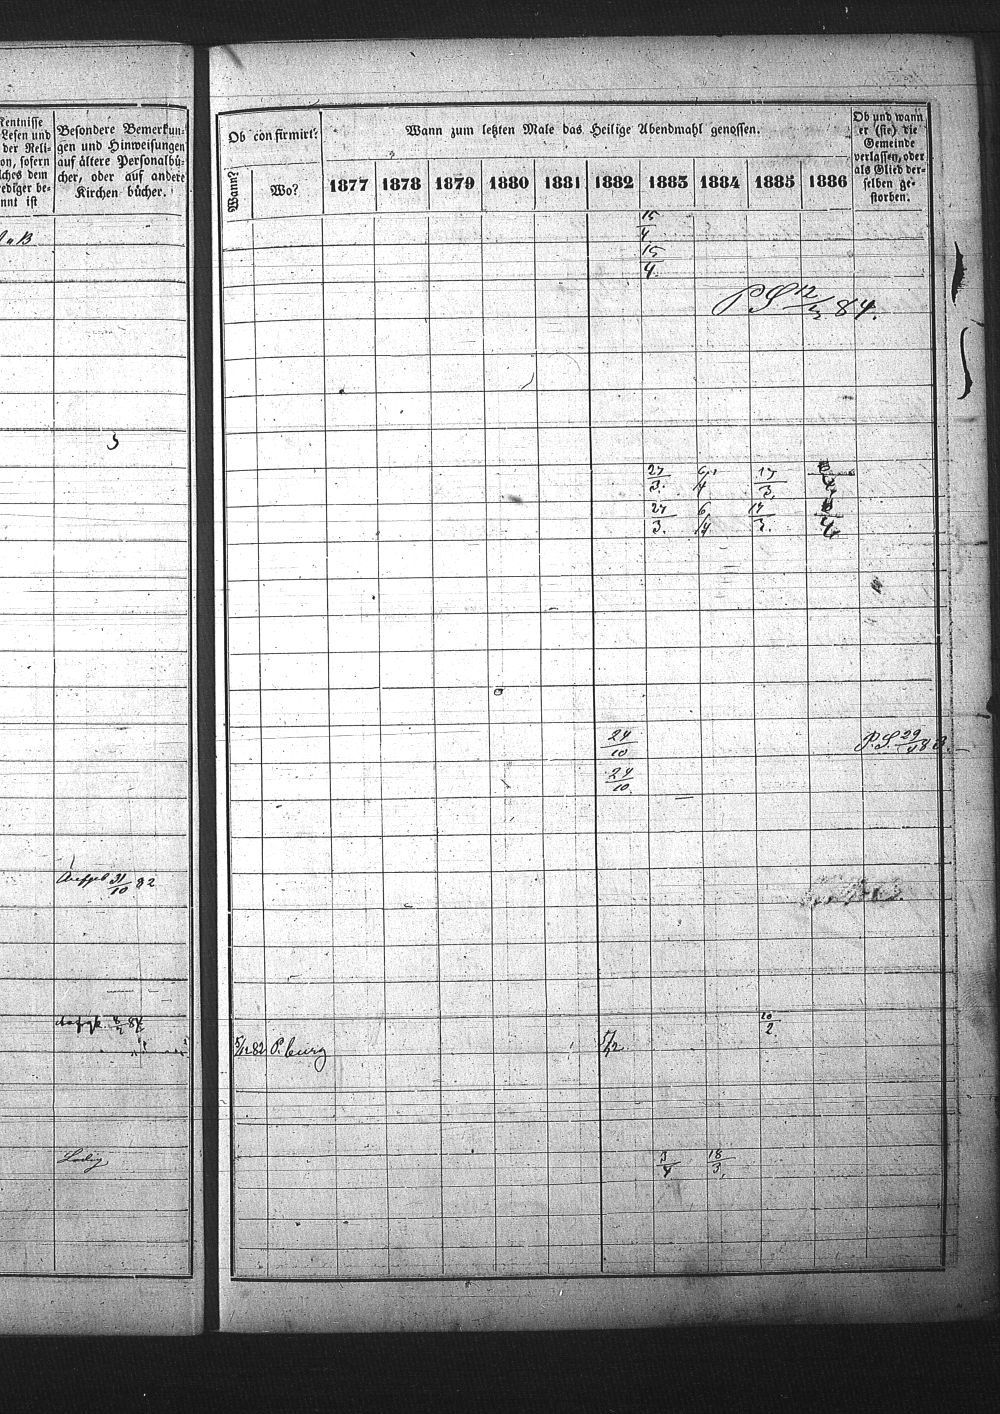 kentnisse
Lesen und
der Reli-
on, sofern
lches dem
ediger be-
nnt ist
Besondere Bemerkun-
gen und Hinweisungen
auf ältere Personalbü-
cher, oder auf andere
Kirchen bücher.
Ob confirmirt:
Wann?
Wo?
Wann zum letzten Male das Heilige Abendmahl genossen.
1877 1878 1879 1880 1881 1882 1883 1884 1885 1886
Ob und wann
er (sie) die
Gemeinde
verlassen, oder
als Glied der-
selben ge-
storben.
15/4
15/4.
P. S. 12/ 84.
27/3. 6/4 17/3.
27/3. 6/4 17/3.
24/10 P. S. 29/ 83.
24/10.
31/10 82
20/2.
5/12 82 P. burg 5/12
Ledig 3/4 18/3.